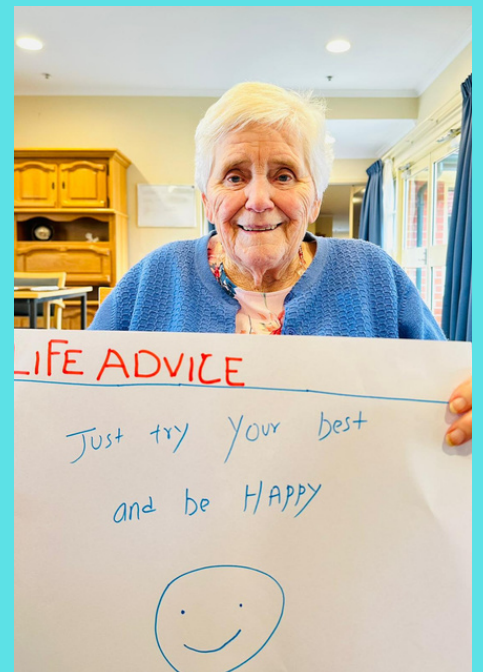 LIFE ADVICE
Just try your best
and be HAPPY